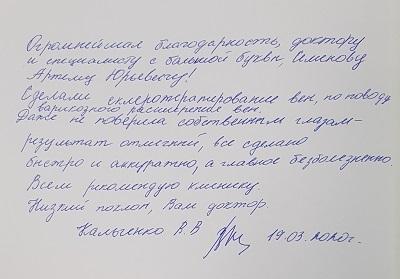 Огромнейшая благодарность, доктору
и специалисту с большой буквы, Семенову
Артему Юрьевичу!
Сделали склеротрапирование вен, по поводу
варикозного расширение вен.
Даже не поверила собственным глазам-
результат отличный, все сделано
быстро и аккуратно, а главное безболезненно.
Всем рекомендую клинику.
Низкий поклон, Вам доктор.
Кальченко В.В 19.03.2020г.